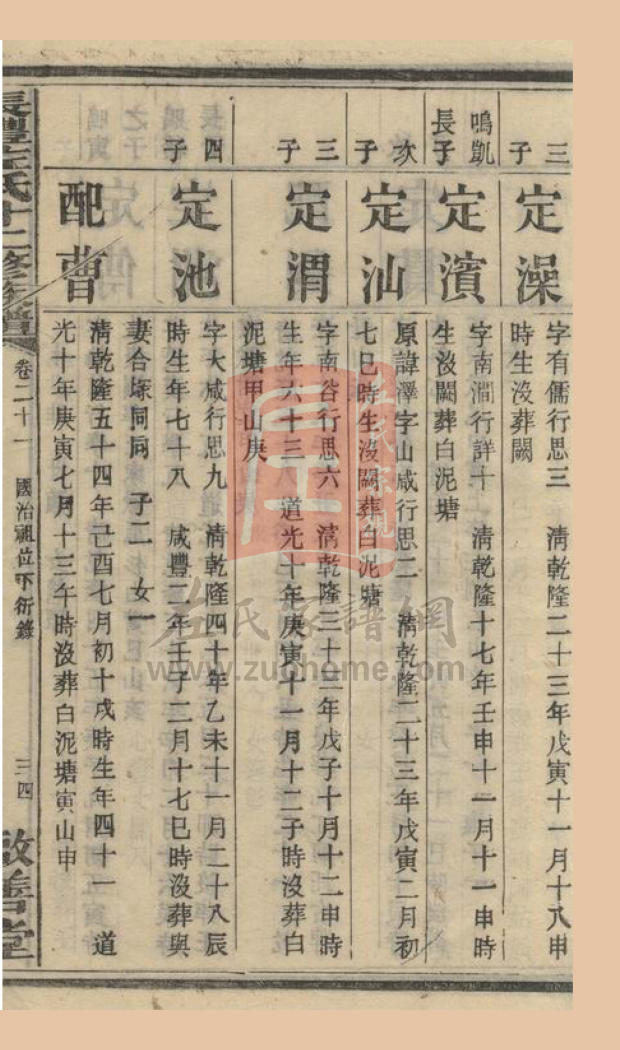 三子
定澡
字有儒行思三　清乾隆二十三年戊寅十一月十八申
時生沒葬闕
鳴凱長子
定濱
字南澗行詳十　清乾隆十七年壬申十一月十一申時
生沒闕葬白泥塘
次子
定汕
原諱澤字山咸行思二　清乾隆二十三年戊寅二月初
七巳時生沒闕葬白泥塘
三子
定渭
字南谷行思六　清乾隆三十三年戊子十月十二申時
生年六十三　道光十年庚寅十一月十二子時沒葬白
泥塘甲山庚
四子
定池
字大咸行思九　清乾隆四十年乙未十一月二十八辰
時生年七十八　咸豐二年壬子二月十七巳時沒葬與
妻合塚同向　子二　女一
配曹
清乾隆五十四年己酉七月初十戌時生年四十一　道
光十年庚寅七月十三午時沒葬白泥塘寅山申
長豐左氏十二修族譜
卷二十一　國治祖位下衍錄
三四
敦善堂
左氏家譜網
www.zuohome.com